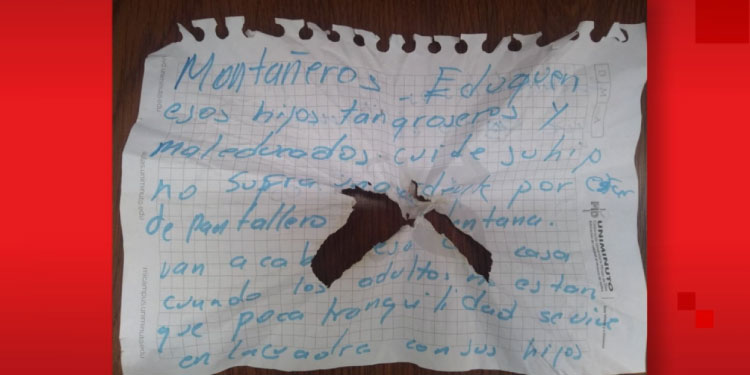 Montañeros. Eduquen
esos hijos tan groseros y
maleducados. cuide su hijo
no sufra por estar
de pantallero ventana.
van a acabar esa casa
cuando los adultos no estan
que poca tranquilidad se vive
en la cuadra con sus hijos
UNIMINUTO
D M A